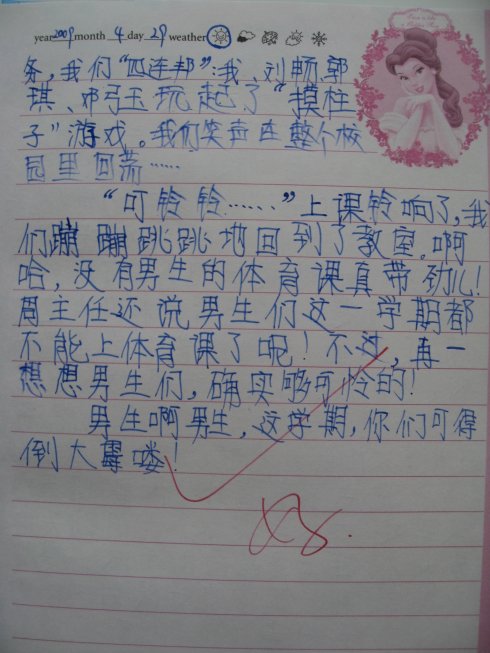 year 2009 month 4 day 29 weather
务,我们“四连邦”:我、刘畅、郭
琪、邓弓玉玩起了“摸柱
子”游戏。我们笑声在整个校
园里回荡……
“叮铃铃……”上课铃响了,我
们蹦蹦跳跳地回到了教室。啊
哈,没有男生的体育课真带劲儿!
周主任还说男生们这一学期都
不能上体育课了呢!不过,再一
想想男生们,确实够可怜的!
男生啊男生,这学期,你们可得
倒大霉喽!